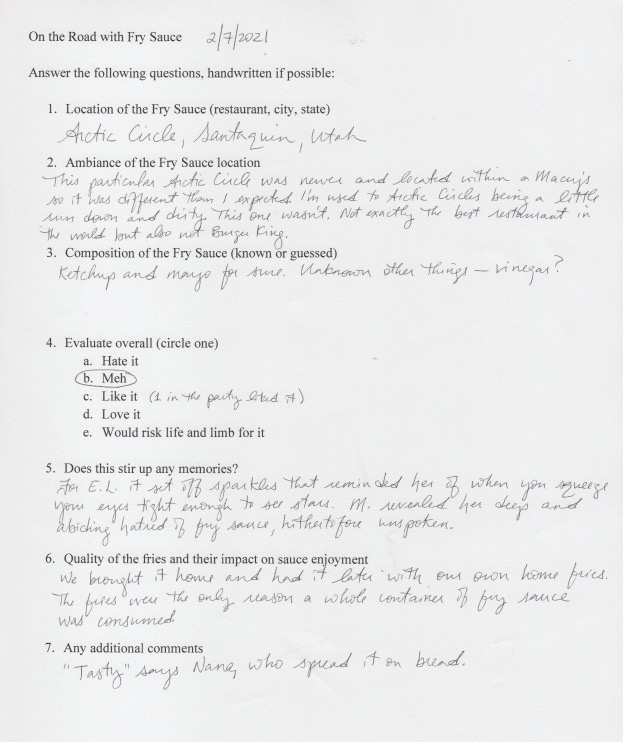 On the Road with Fry Sauce 2/7/2021
Answer the following questions, handwritten if possible:
1. Location of the Fry Sauce (restaurant, city, state)
Arctic Circle, Santaquin, Utah
2. Ambiance of the Fry Sauce location
This particular Arctic Circle was newer and located within a Macey's
so it was different than I expected. I'm used to Arctic Circles being a little
run down and dirty. This one wasn't. Not exactly the best restaurant in
the world but also not Burger King.
3. Composition of the Fry Sauce (known or guessed)
Ketchup and mayo for sure. Unknown other things – vinegar?
4. Evaluate overall (circle one)
a. Hate it
b. Meh
c. Like it (1 in the party liked it)
d. Love it
e. Would risk life and limb for it
5. Does this stir up any memories?
For E.L. it set off sparkles that reminded her of when you squeeze
your eyes tight enough to see stars. M. revealed her deep and
abiding hatred of fry sauce, hithertofore unspoken.
6. Quality of the fries and their impact on sauce enjoyment
We brought it home and had it later with our own home fries.
The fries were the only reason a whole container of fry sauce
was consumed
7. Any additional comments
"Tasty" says Nana, who spread it on bread.